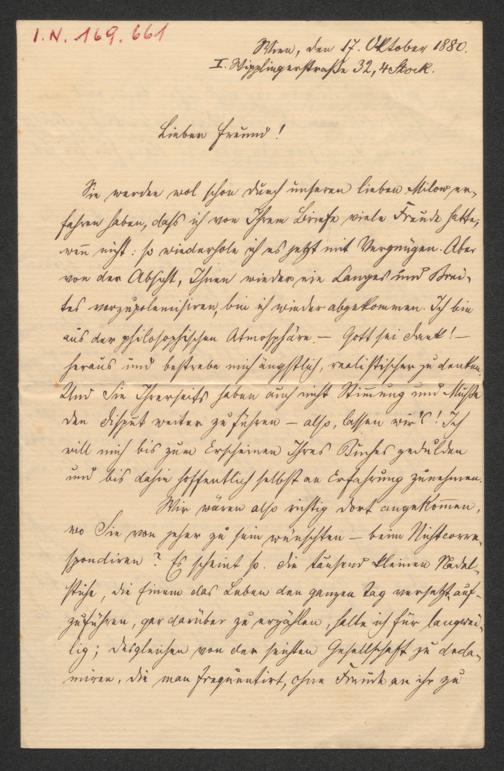 I.N. 169.661
Wien, den 17. Oktober 1880.
I. Wipplingerstraße 32, 4 Stock.
Lieber Freund!
Sie werden wol schon durch unseren lieben Milow er-
fahren haben, daß ich von Ihrem Briefe viele Freude hatte,
wenn nicht: so wiederhole ich es jetzt mit Vergnügen. Aber
von der Absicht, Ihnen wieder ein Langes und Brei-
tes vorzupolemisiren, bin ich wieder abgekommen. Ich bin
aus der philosophischen Atmosphäre – Gott sei Dank! –
heraus und bestrebe mich ängstlich, realistischer zu denken.
Und Sie Ihrerseits haben auch nicht Stimmung und Muße
den Disput weiter zu führen – also, lassen wir's! Ich
will mich bis zum Erscheinen Ihres Buches gedulden
und bis dahin hoffentlich selbst an Erfahrung zunehmen.
Wir wären also richtig dort angekommen,
wo Sie von jeher zu sein wünschten – beim Nichtcorre-
spondiren? Es scheint so. Die tausend kleinen Nadel-
stiche, die Einem das Leben den ganzen Tag versetzt, auf-
zuführen, gar darüber zu erzählen, halte ich für langwei-
lig; desgleichen von der seichten Gesellschaft zu decla-
miren, die man frequentirt, ohne Freude an ihr zu